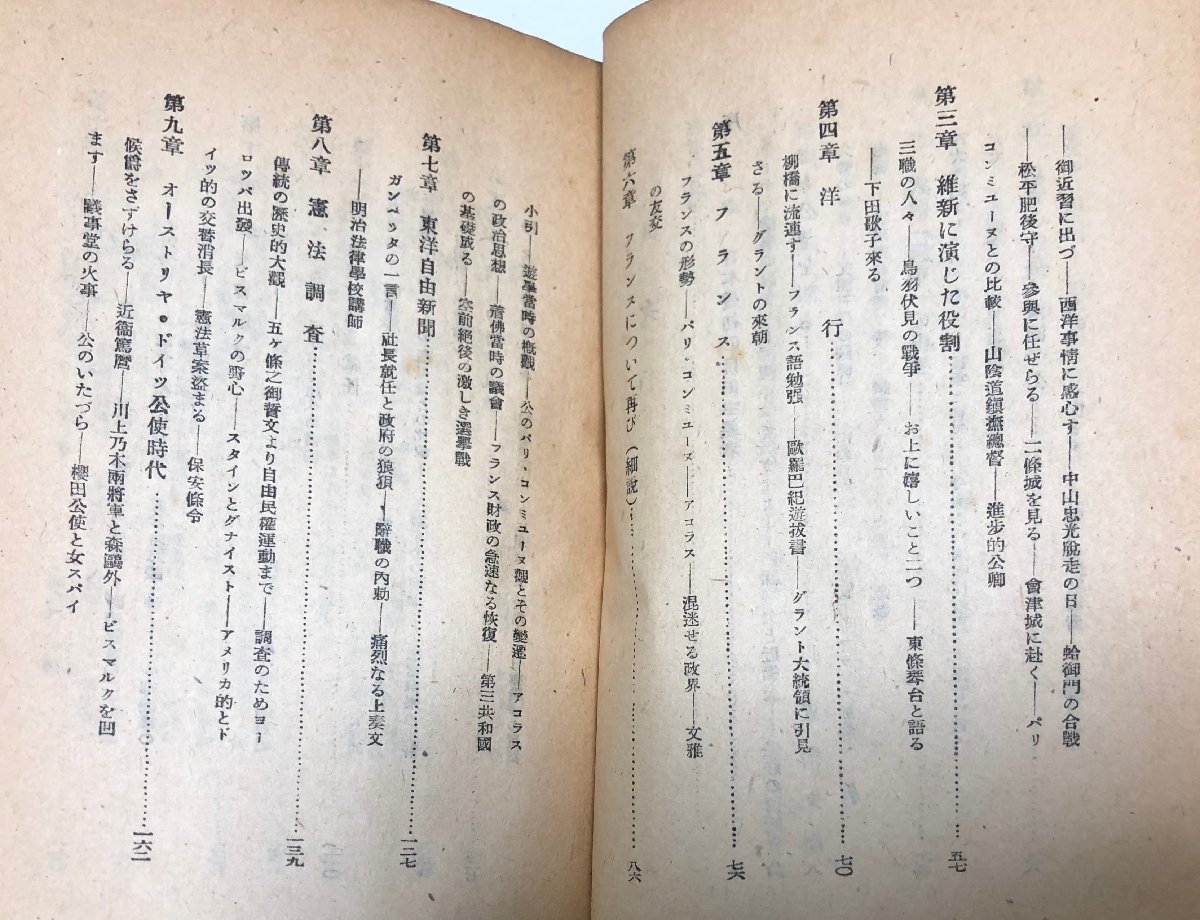 ――御近習に出づ――西洋事情に感心す――中山忠光脱走の日――蛤御門の合戰
――松平肥後守――參與に任せらる――二條城を見る――會津城に赴く――パリ
コンミューヌとの比較――山陰道鎭撫總督――進步的公卿
第三章 維新に演じた役割……五七
三職の人々――鳥羽伏見の戰爭――お上に嬉しいこと二つ――東條琴台と語る
――下田歌子來る
第四章 洋行……七〇
柳橋に流連す――フランス語勉强――歐羅巴紀遊拔書――グラント大統領に引見
さる――グラントの來朝
第五章 フランス……七六
フランスの形勢――パリ・コンミューヌ――アコラス――混迷せる政界――文雅
の友交
第六章 フランスについて再び(細說)……八六
小引――遊學當時の槪觀――公のパリ・コンミューヌ觀とその變遷――アコラス
の政治思想――着佛當時の議會――フランス財政の急速なる恢復――第三共和國
の基礎成る――空前絕後の激しき選擧戰
第七章 東洋自由新聞……一二七
ガンベッタの一言――社長就任と政府の狼狽――辭職の內勅――痛烈なる上奏文
――明治法律學校講師
第八章 憲法調査……一三九
傳統の歷史的大觀――五ヶ條之御誓文より自由民權運動まで――調査のためヨー
ロッパ出發――ビスマルクの野心――スタインとグナイスト――アメリカ的とド
イツ的の交替消長――憲法草案盜まる――保安條令
第九章 オーストリヤ・ドイツ公使時代……一六二
候爵をさずけらる――近衞篤麿――川上乃木兩將軍と森鷗外――ビスマルクを凹
ます――議事堂の火事――公のいたづら――櫻田公使と女スパイ